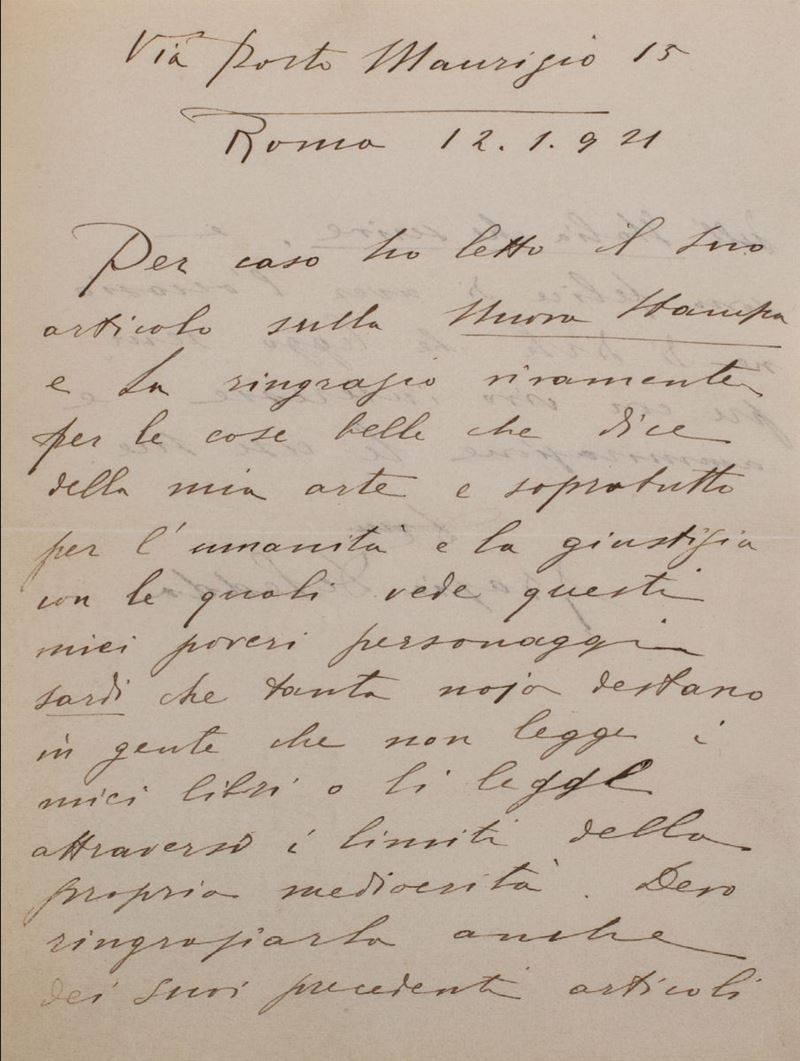 Via Porto Maurizio 15
Roma 12.1.921
Per caso ho letto il suo
articolo sulla Nuova Stampa
e La ringrazio vivamente
per le cose belle che dice
della mia arte e sopratutto
per l'umanità e la giustizia
con le quali vede questi
miei poveri personaggi
sardi che tanta noja destano
in gente che non legge i
miei libri o li legge
attraverso i limiti della
propria mediocrità. Devo
ringraziarla anche
dei suoi precedenti articoli